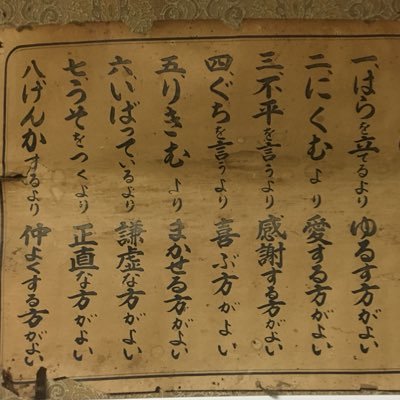 一、はらを立てるより ゆるす方がよい
二、にくむより 愛する方がよい
三、不平を言うより 感謝する方がよい
四、ぐちを言うより 喜ぶ方がよい
五、りきむより まかせる方がよい
六、いばっているより 謙虚な方がよい
七、うそをつくより 正直な方がよい
八、げんかするより 仲よくする方がよい